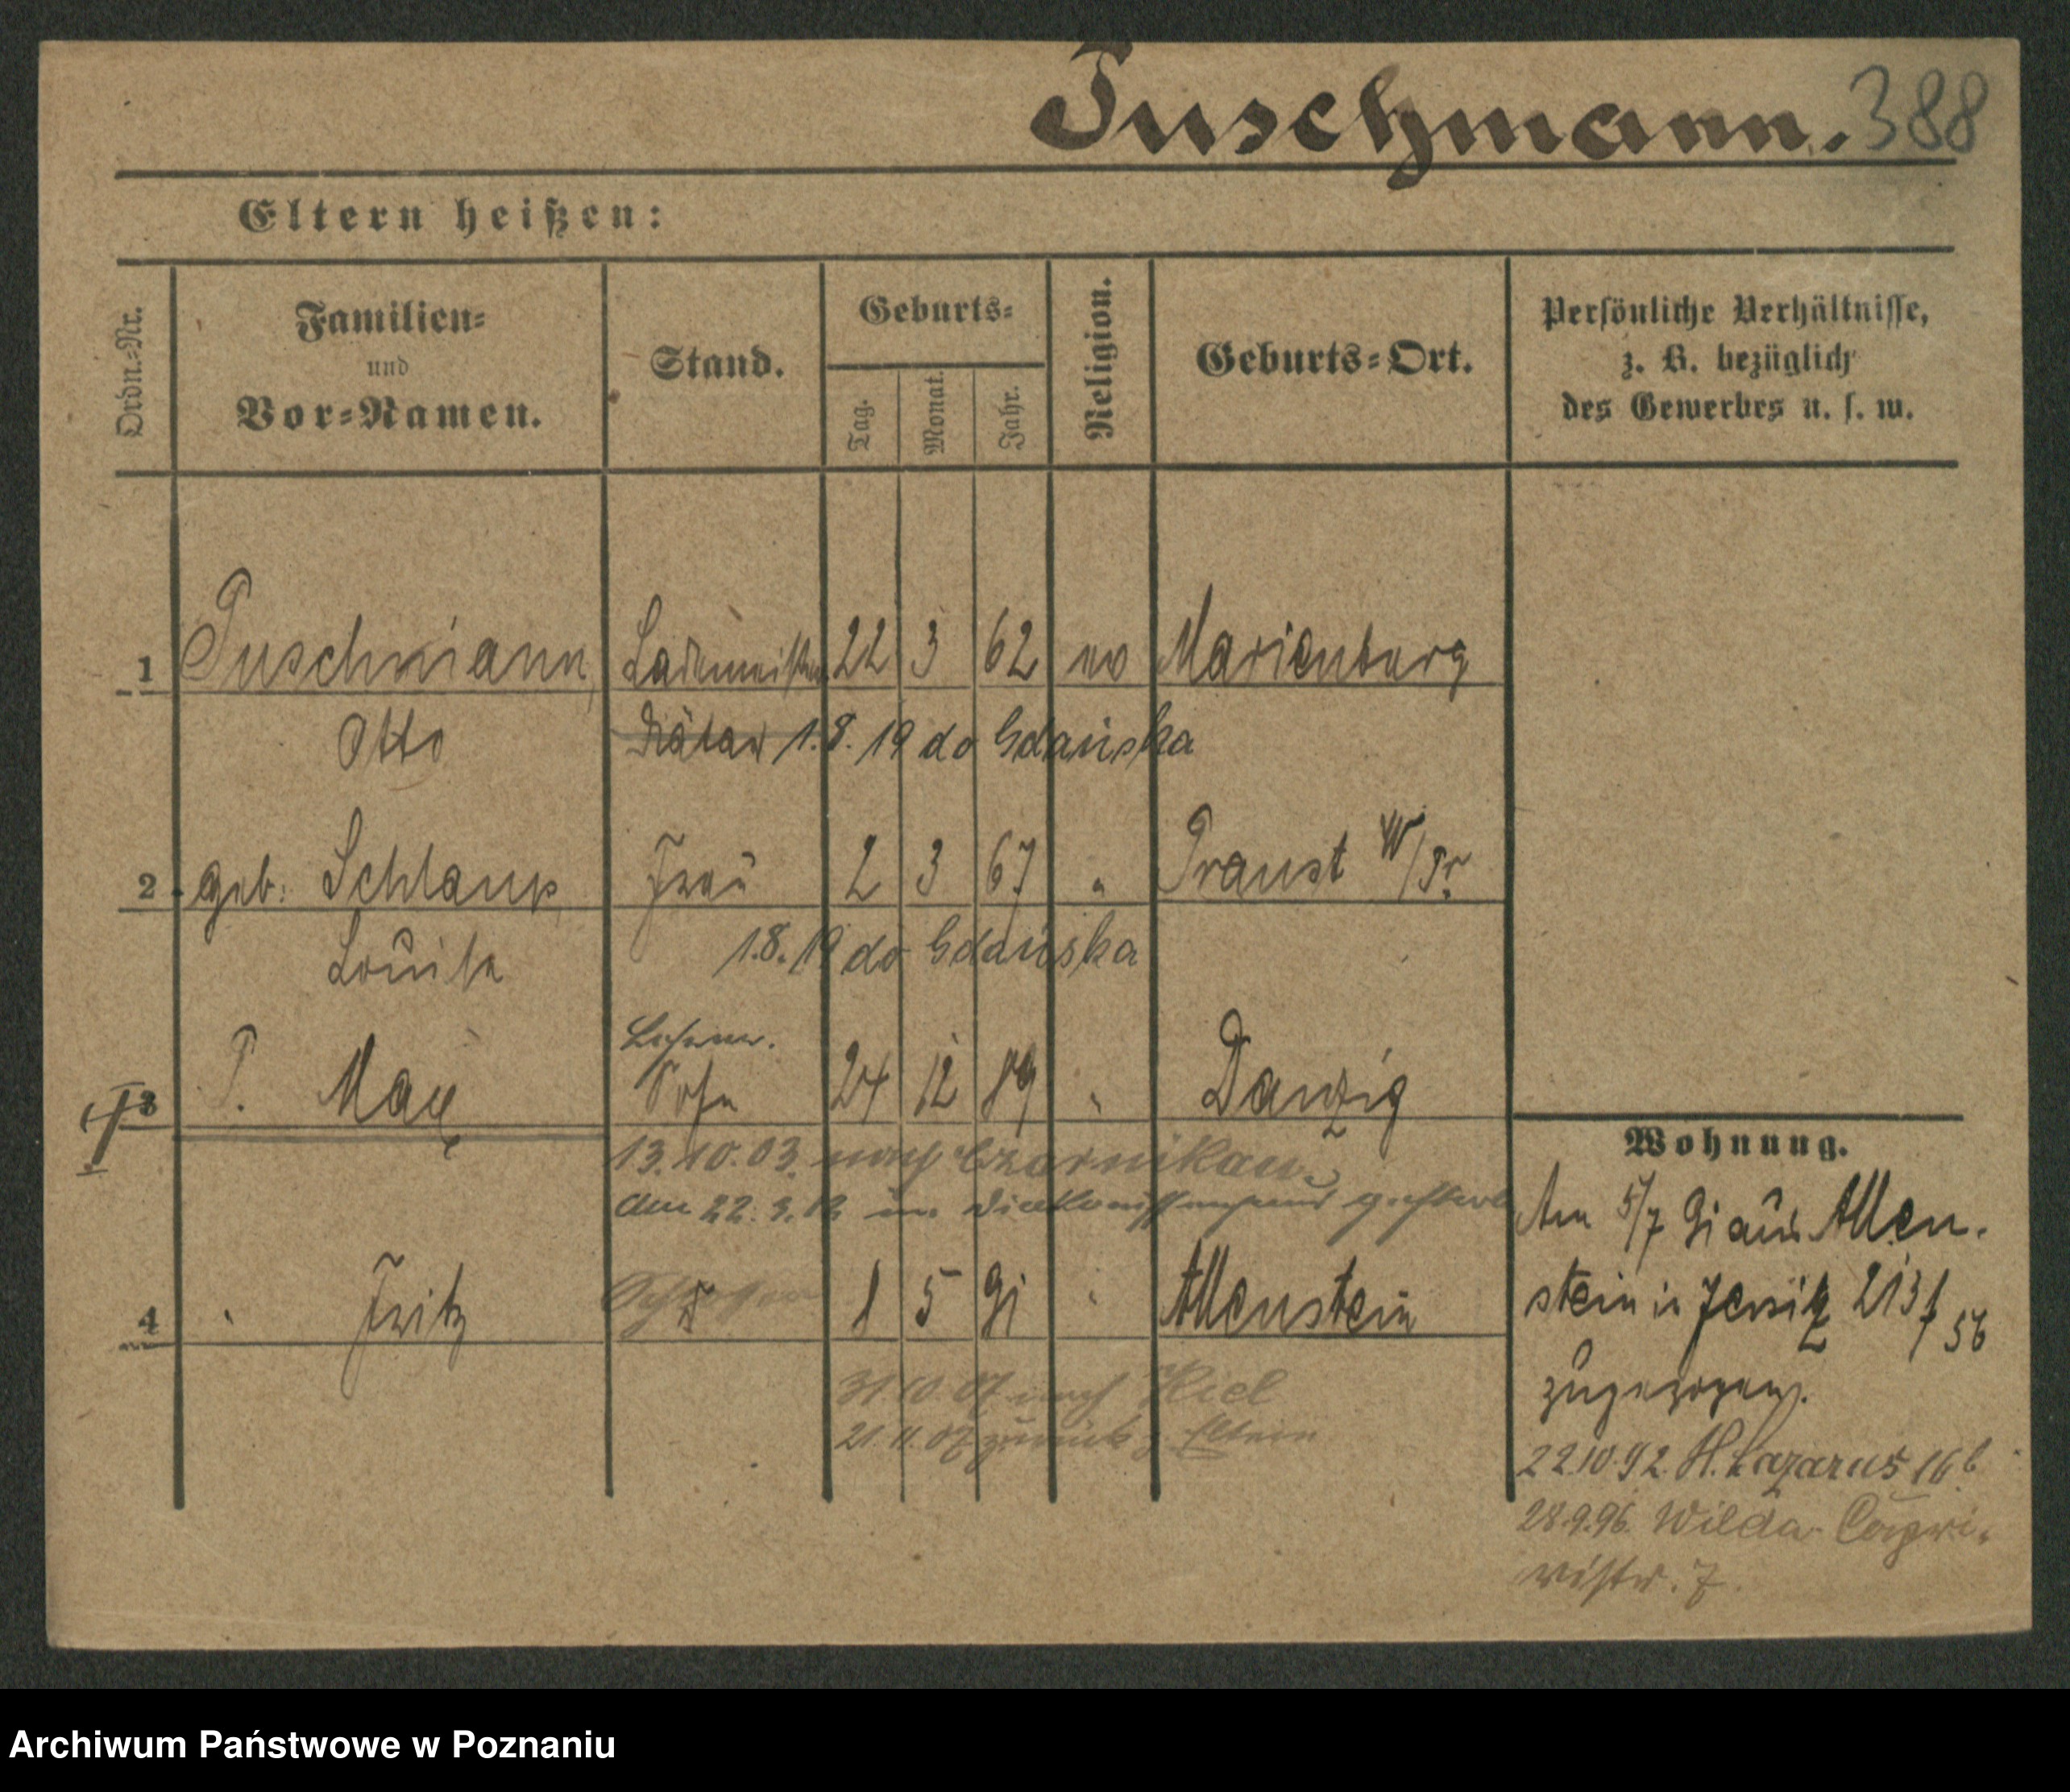 Puschmann. 388
Eltern heißen:
Ordn.-Nr.
Familien-
und
Vor-Namen.
Stand.
Geburts-
Tag.
Monat.
Jahr.
Religion.
Geburts-Ort.
Persönliche Verhältnisse,
z. B. bezüglich
des Gewerbes u. s. w.
1 Puschmann, Lademeister 22 3 62 ev Marienburg
Otto Diätar 1.8.19 do Gdańska
2 geb: Schlaup Frau 2 3 67 " Praust W/Pr.
Louise 1.8.19 do Gdańska
Lehrer.
3 P. Max Sohn 24 12 89 " Danzig
13.10.03. nach Czarnikau.
am 22.3.12 im Diakonissenhaus
4 " Fritz 1 5 91 " Allenstein
31.10.07 nach Kiel
21.11.07 zurück z. Eltern
Wohnung.
Am 5/7 91 aus Allen-
stein in Jersitz 213f
56
zugezogen.
22.10.92. St. Lazarus 16b
28.9.96. Wilda- Capri-
vistr. 7
Archiwum Państwowe w Poznaniu